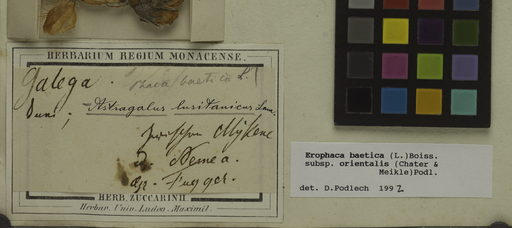 HERBARIUM REGIUM MONACENSE.
Galega. Phaca baetica L.
Astragalus lusitanicus Lam.
zwischen Mykene
& Nemea.
Ap. Fugger.
HERB. ZUCCARINII
Herbar. Univ. Ludov. Maximil.
Erophaca baetica (L.)Boiss.
subsp. orientalis (Chater &
Meikle)Podl.
det. D.Podlech 1992